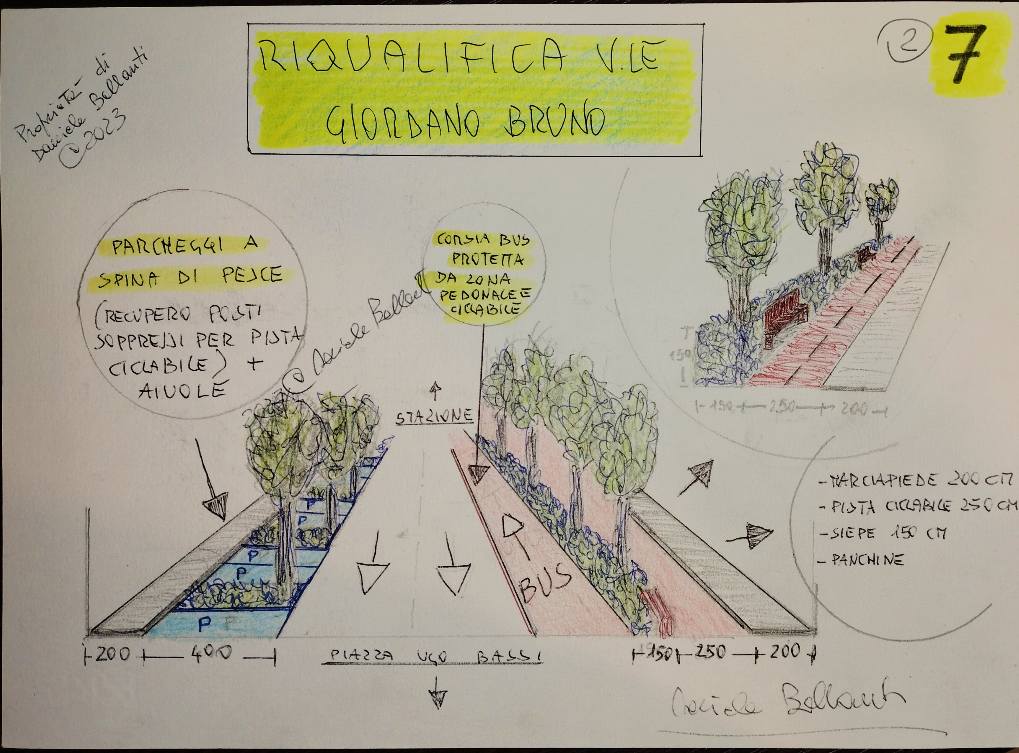 RIQUALIFICA V.LE
GIORDANO BRUNO
2
7
Proprietà di
Daniele Ballanti
© 2023
PARCHEGGI A
SPINA DI PESCE
(RECUPERO POSTI
SOPPRESSI PER PISTA
CICLABILE) +
AIUOLE
CORSIA BUS
PROTETTA
DA ZONA
PEDONALE E
CICLABILE
© Daniele Ballanti
STAZIONE
150
150 250 200
- MARCIAPIEDE 200 CM
- PISTA CICLABILE 250 CM
- SIEPE 150 CM
- PANCHINE
P
P
P
P
P P
BUS
200 400
PIAZZA UGO BASSI
150 250 200
Daniele Ballanti